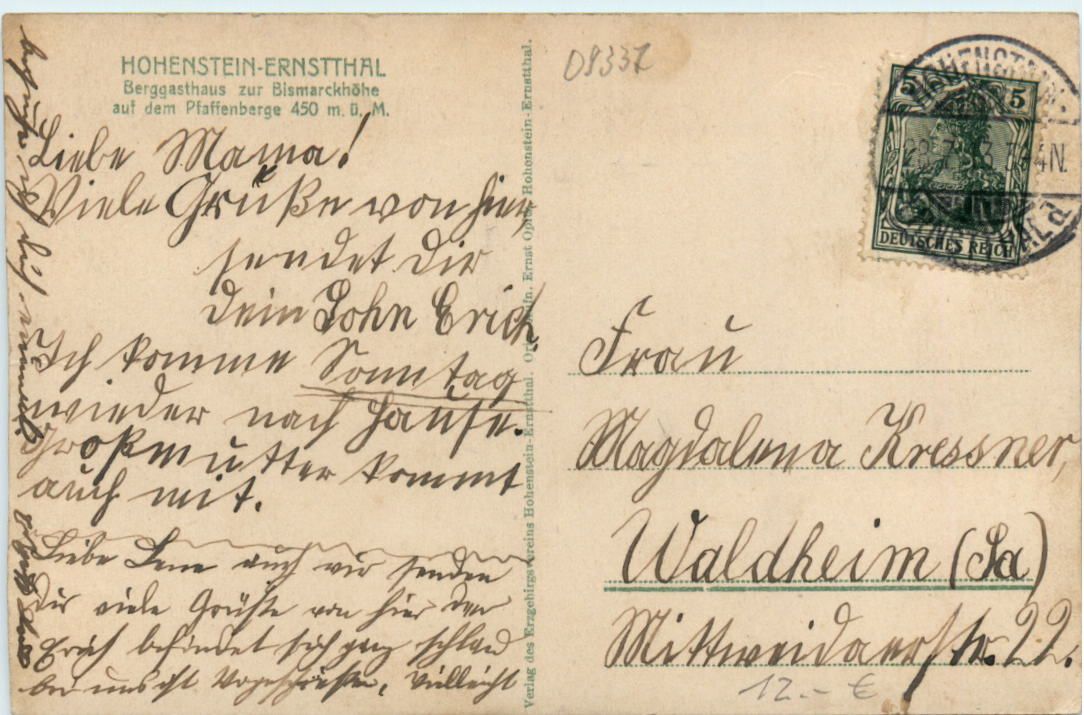 HOHENSTEIN-ERNSTTHAL
Berggasthaus zur Bismarckhöhe
auf dem Pfaffenberge 450 m. ü. M.
Liebe Mama!
Viele Grüße von hier
sendet dir
dein Sohn Erich.
Ich komme Sonntag
wieder nach Hause.
Großmutter kommt
auch mit.
Liebe Lene auch wir senden
Dir viele Grüße von hier der
Erich befindet sich ganz schlau
bei uns ist, vielleicht
besuche ich dich
Verlag des Erzgebirgsvereins Hohenstein-Ernstthal. Ernst Opitz, Hohenstein-Ernstthal.
D9337
5 5
DEUTSCHES REICH
Frau
Magdalena Kressner,
Waldheim (Sa)
Mittweidaerstr. 22.
12.- €